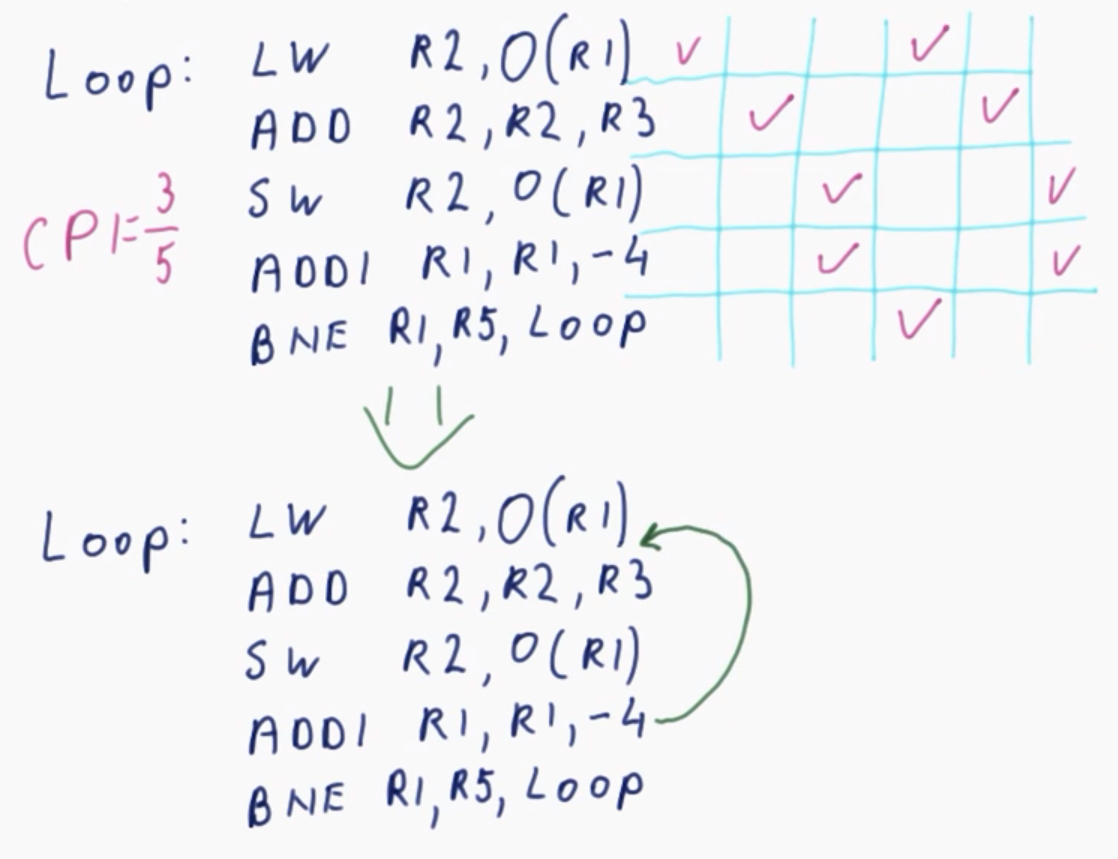 Loop: LW R2, 0(R1) ✓ ✓
ADD R2, R2, R3 ✓ ✓
SW R2, 0(R1) ✓ ✓
CPI = 3/5
ADDI R1, R1, -4 ✓ ✓
BNE R1, R5, Loop ✓
Loop: LW R2, 0(R1)
ADD R2, R2, R3
SW R2, 0(R1)
ADDI R1, R1, -4
BNE R1, R5, Loop